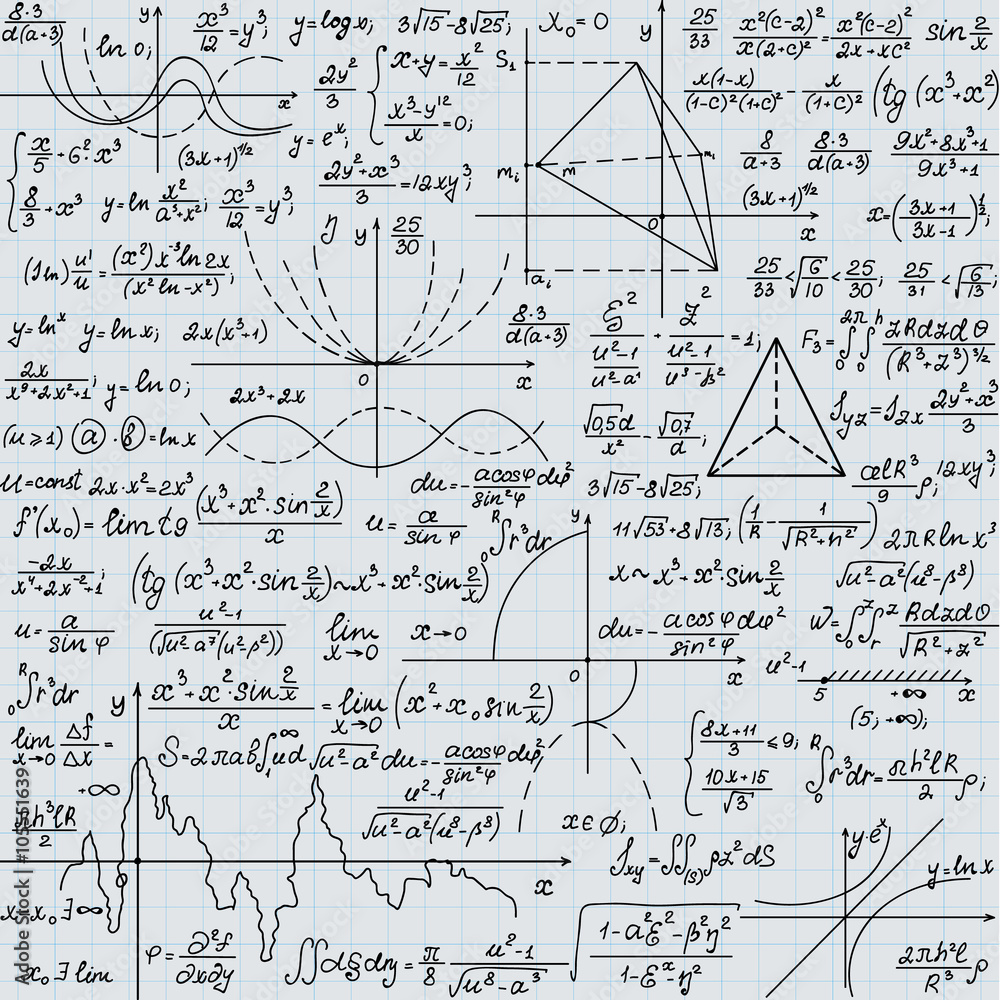 8·3 / d(a+3)
y
ln 0;
x³/12 = y³;
y = log x;
3√15 - 8√25;
X₀ = 0
y
25/33
x²(c-2)²/x(2+c)² = x²(c-2)²/2x+xc²
sin 2/x
x
2y²/3
{ x+y = x²/12
x³-y¹²/x = 0;
S₁
x(1-x)/(1-c)²(1+c)² - x/(1+c)²
(tg (x³+x²)
y = eˣ;
{ x/5 + 6² · x³
8/3 + x³
(3x+1)^1/2
2y²+x³/3 = 12xy³;
mᵢ
m
mᵢ
8/a+3
8·3/d(a+3)
9x²+8x³+1/9x³+1
y = ln x²/a³+x²;
x³/12 = y³;
(3x+1)^1/2
x = (3x+1/3x-1)^1/2;
0
x
y
25/30
aᵢ
(ln) u'/u = (x²)x⁻³ ln 2x/(x² ln -x²);
25/33 < √6/10 < 25/30;
25/31 < √6/13;
y = lnˣ
y = ln x;
2x(x³+1)
8·3/d(a+3)
F₃ = ∫₀^2π ∫₀^h zRdzdθ/(R³+Z³)^3/2
2x/x⁹+2x²+1;
y = ln 0;
0
x
2x³+2x
√0,5d/x² - √0,7/d;
2y²+x³/3
(u≥1) (a) · (b) = ln x
u = const
2x·x² = 2x³
du = - a cosφ dφ²/sin²φ
3√15 - 8√25;
ælR³/9 ρ;
12xy³;
f'(x₀) = lim tg (x³+x²·sin 2/x)/x
u = a/sin φ
₀∫ᴿ r³dr
y
11√53 + 8√13;
(1/R - 1/√R²+h²)
2πR ln x³
-2x/x⁴+2x⁻²+1;
(tg (x³+x²·sin 2/x) ~ x³+x²·sin 2/x)
x ~ x³+x²·sin 2/x
√u²-a² (u⁸-β³)
u = a/sin φ
u²-1/(√u²-a⁷ (u²-β²))
lim x→0
x→0
du = - a cosφ dφ²/sin²φ
W = ∫₀ ∫ᵣ z Rdzdθ/√R²+z²
0
x
u²-1
5
+∞
x
₀∫ᴿ r³dr
y
x³+x²·sin 2/x / x = lim x→0 (x²+x₀ sin 2/x)
(5; +∞);
lim x→0 Δf/Δx =
S = 2πab ∫₁^∞ ud
√u²-a² du = - a cosφ dφ²/sin²φ;
{ 8x+11/3 ≤ 9;
10x+15/√3
∫₀ᴿ r³dr = πh²lR/2 ρ;
+∞
πh³lR/2
u²-1/√u²-a² (u⁸-β³)
x∈∅;
y·eˣ
y = ln x
0
x
∫xy = ∫∫(s) ρz²dS
x₀ ∃ ∞
x₀ ∃ lim
φ = ∂²f/∂x∂y
= π/8 u²-1/√u⁸-a³
√1-a²ℰ²-β²η²/1-ℰˣ-η²
2πh²l/R³ ρ
Adobe Stock | #105551639